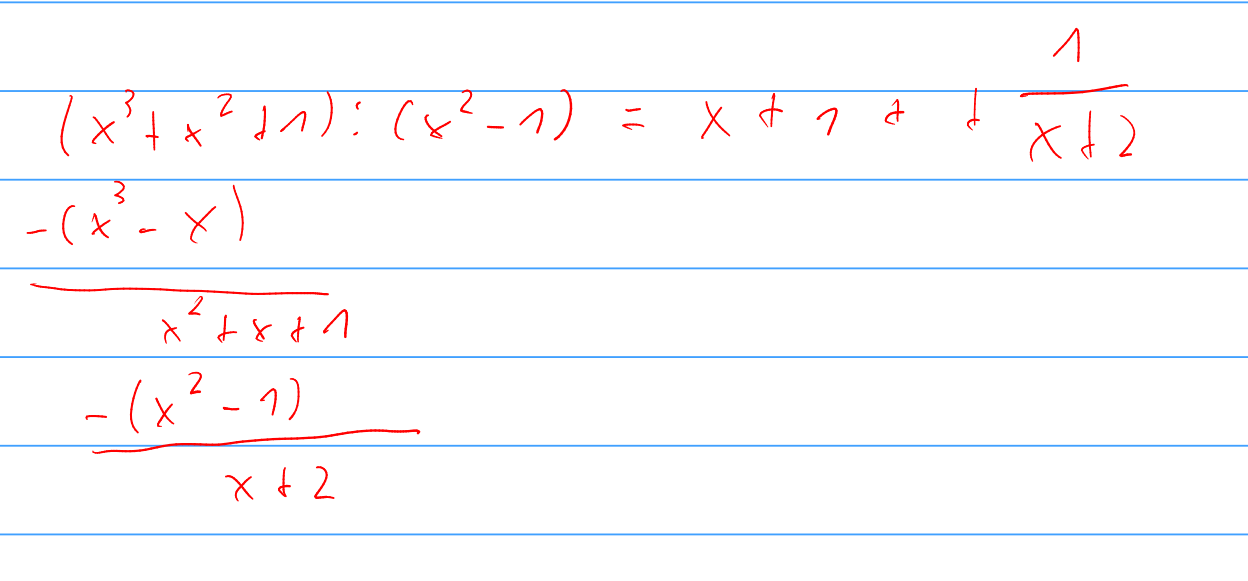 (x³ + x² + 1) : (x² - 1) = x + 1 + + 1/(x + 2)
-(x³ - x)
x² + x + 1
-(x² - 1)
x + 2